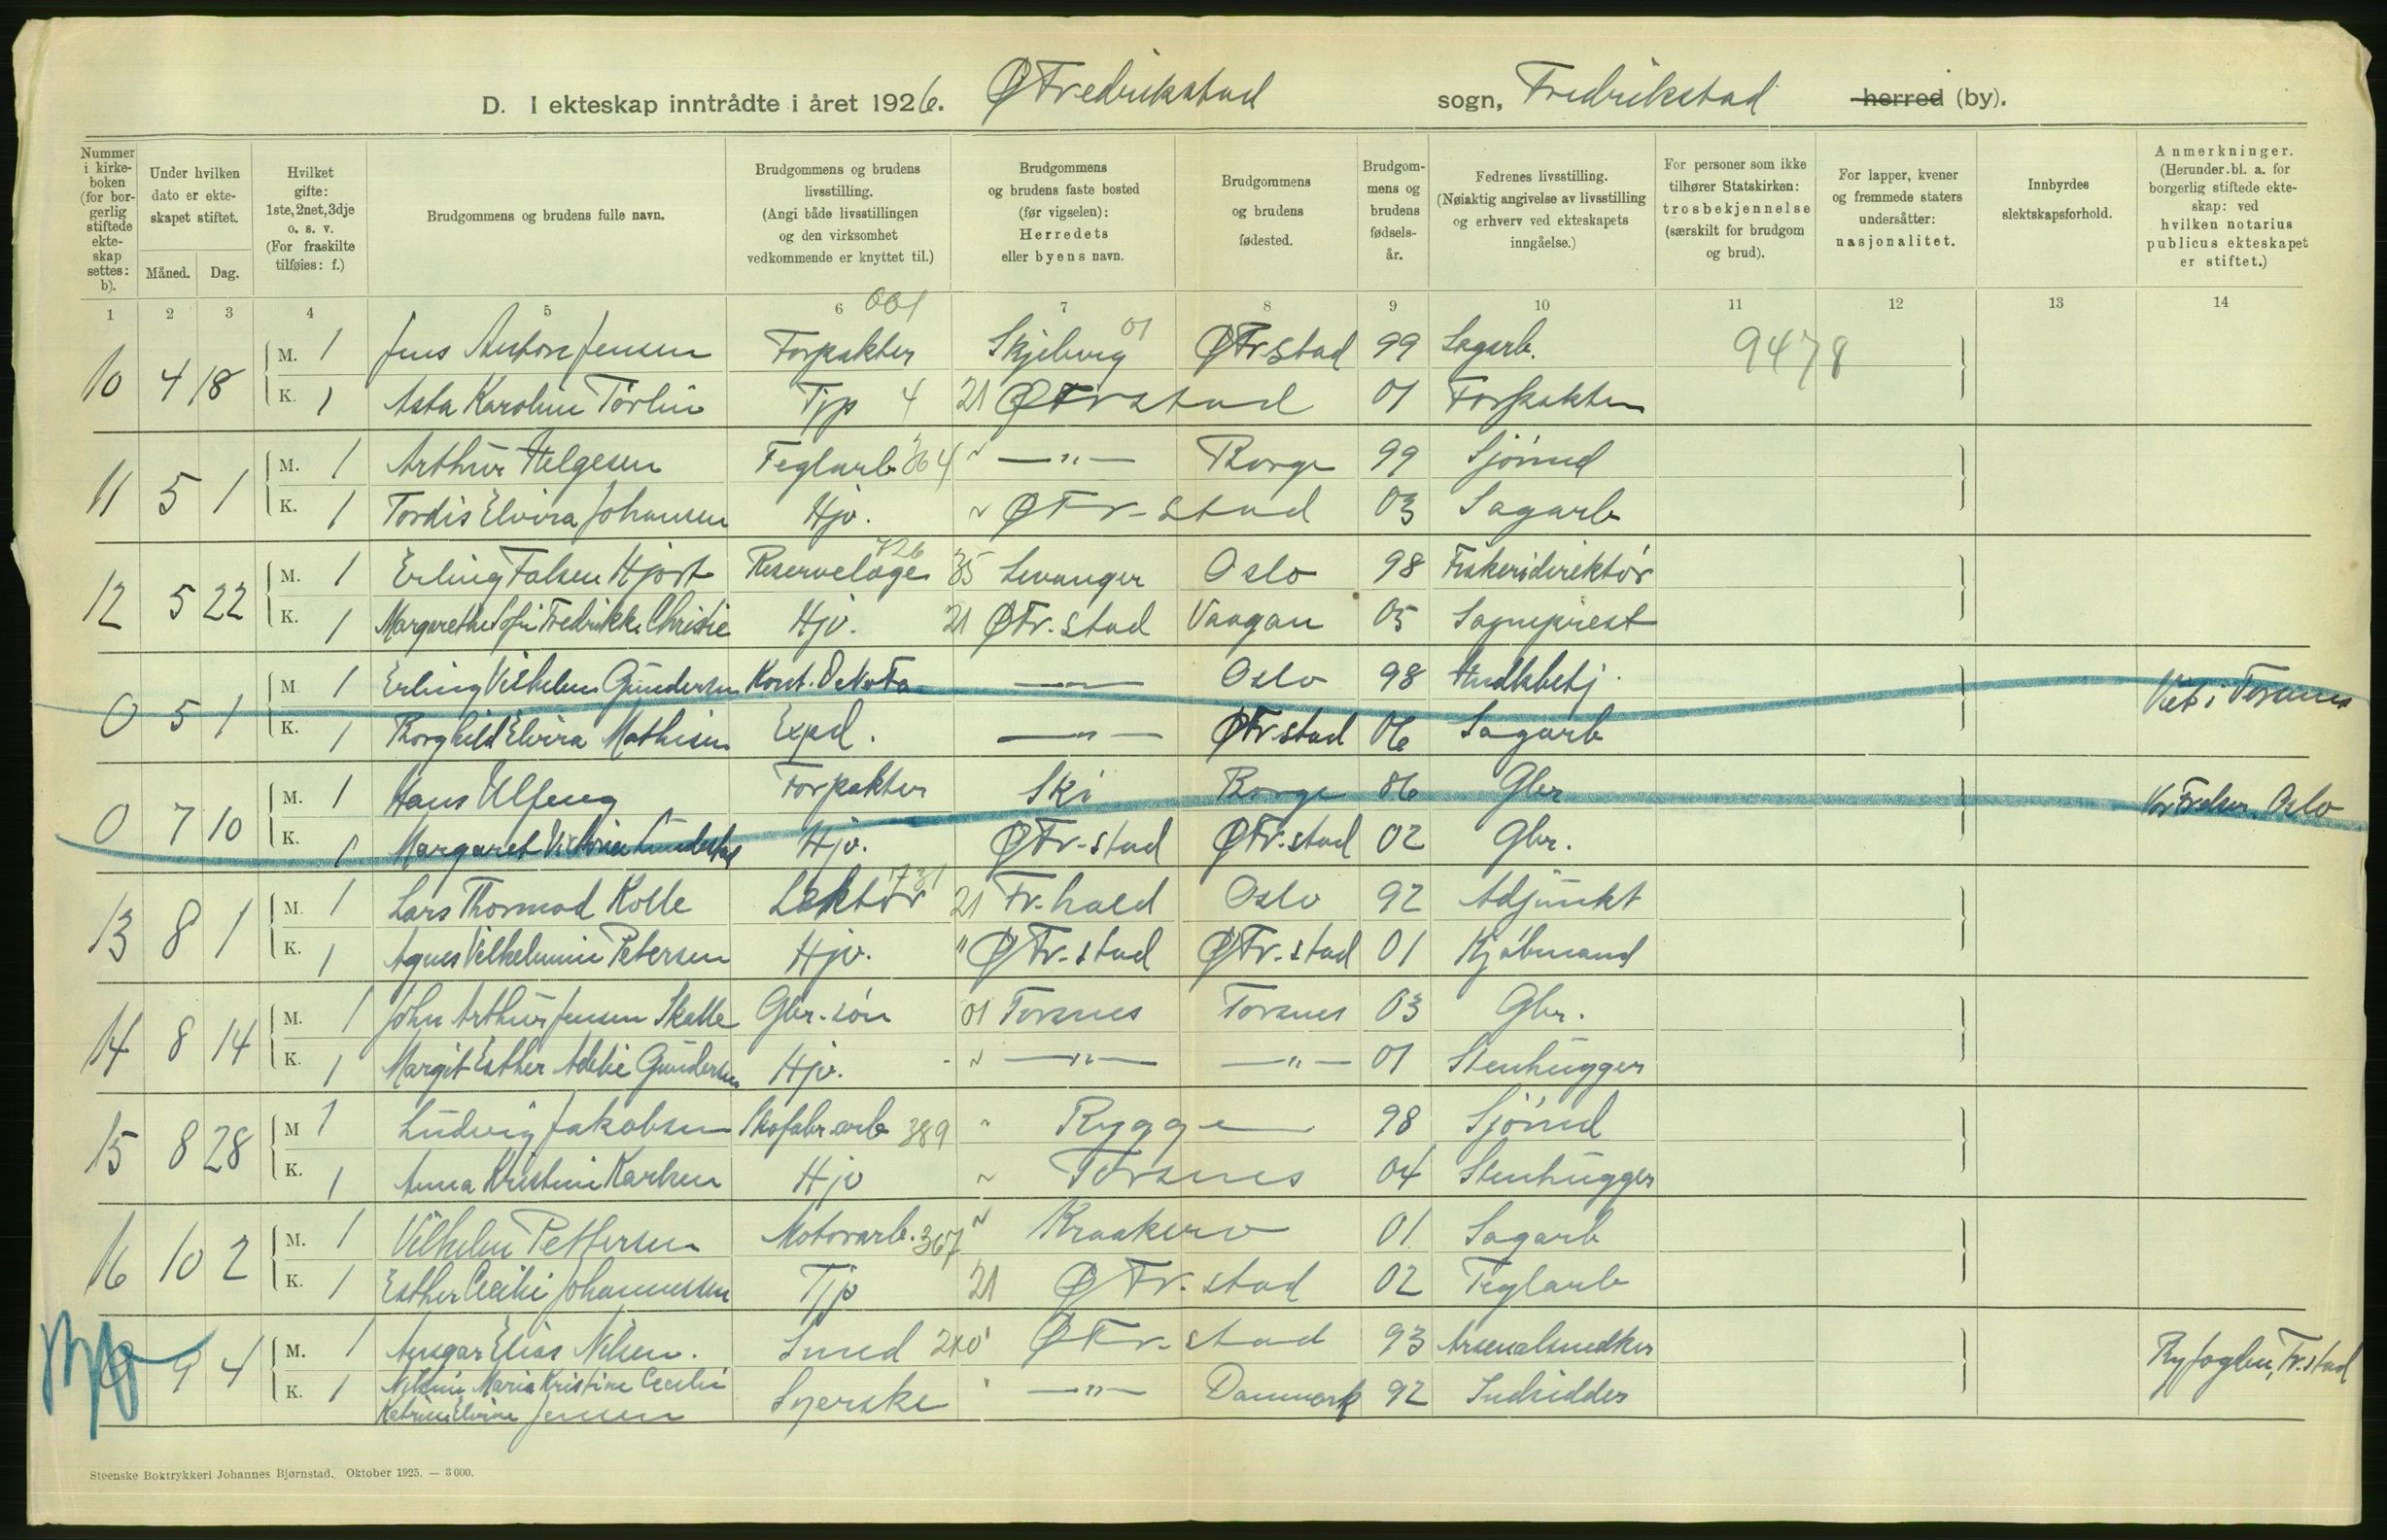 D. I ekteskap inntrådte i året 1926. ØFredrikstad sogn, Fredrikstad herred (by).
Nummer i kirke-boken (for bor-gerlig stiftede ekte-skap settes: b).
Under hvilken dato er ekte-skapet stiftet.
Måned. Dag.
Hvilket gifte: 1ste, 2net, 3dje o. s. v. (For fraskilte tilføies: f.)
Brudgommens og brudens fulle navn.
Brudgommens og brudens livsstilling. (Angi både livsstillingen og den virksomhet vedkommende er knyttet til.)
Brudgommens og brudens faste bosted (før vigselen): Herredets eller byens navn.
Brudgommens og brudens fødested.
Brudgom-mens og brudens fødsels-år.
Fedrenes livsstilling. (Nøiaktig angivelse av livsstilling og erhverv ved ekteskapets inngåelse.)
For personer som ikke tilhører Statskirken: trosbekjennelse (særskilt for brudgom og brud).
For lapper, kvener og fremmede staters undersåtter: nasjonalitet.
Innbyrdes slektskapsforhold.
Anmerkninger. (Herunder bl. a. for borgerlig stiftede ekte-skap: ved hvilken notarius publicus ekteskapet er stiftet.)
1 2 3 4 5 6 001 7 8 9 10 11 12 13 14
10 4 18 M. 1 Jens Anton Jensen Forpakter Skjeberg 01 ØFrstad 99 Sagarb. 9478
K. 1 Asta Karoline Törlin Tjp 4 21 ØFrstad 01 Forpakter
11 5 1 M. 1 Arthur Helgesen Teglarb 364 " —"— Borge 99 Sjömd
K. 1 Tordis Elvira Johansen Hjv. " ØFr-stad 03 Sagarb
12 5 22 M. 1 Erling Falsen Hjort Reservelæge 726 35 Levanger Oslo 98 Fiskeridirektör
K. 1 Margarethe Sofie Fredrikke Christie Hjv. 21 ØFr.stad Vaagan 05 Sogneprest
0 5 1 M. 1 Erling Vilhelm Gundersen Kont. DeNoFa —"— Oslo 98 Hndlsbetj. Viet i Torsnes
K. 1 Borghild Elvira Mathisen Exped. —"— ØFrstad 06 Sagarb
0 7 10 M. 1 Hans Ulfeng Forpakter Ski Borge 86 Gbr Vor Frelser. Oslo
K. 1 Margaret Victoria Hjv. ØFr-stad ØFr.stad 02 Gbr.
13 8 1 M. 1 Lars Thormod Kolle Lektör 731 21 Fr.hald Oslo 92 Adjunkt
K. 1 Agnes Vilhelmine Petersen Hjv. " ØFr-stad ØFr-stad 01 Kjöbmand
14 8 14 M. 1 John Arthur Jensen Skalle Gbr-sön 01 Torsnes Torsnes 03 Gbr.
K. 1 Margit Esther Adelie Gundersen Hjv. - " —"— —"— 01 Stenhugger
15 8 28 M 1 Ludvig Jakobsen Skofabr.arb 389 " Rygge 98 Sjömd
K. 1 Anna Kristine Karlsen Hjv " Torsnes 04 Stenhugger
16 10 2 M. 1 Vilhelm Pettersen Motorarb. 367 " Kraakerö 01 Sagarb
K. 1 Esther Cecilie Johannessen Tjp 21 ØFr.stad 02 Teglarb
0 9 4 M. 1 Ansgar Elias Nilsen. Smed 210 ØFr-stad 93 Arsenalsnedker Byfogden, Fr.stad
K. 1 Maria Kristine Cecilie Syerske " —"— Danmark 92 Indsidder
Katrine Elvine Jensen
Steenske Boktrykkeri Johannes Bjørnstad. Oktober 1925. — 3000.